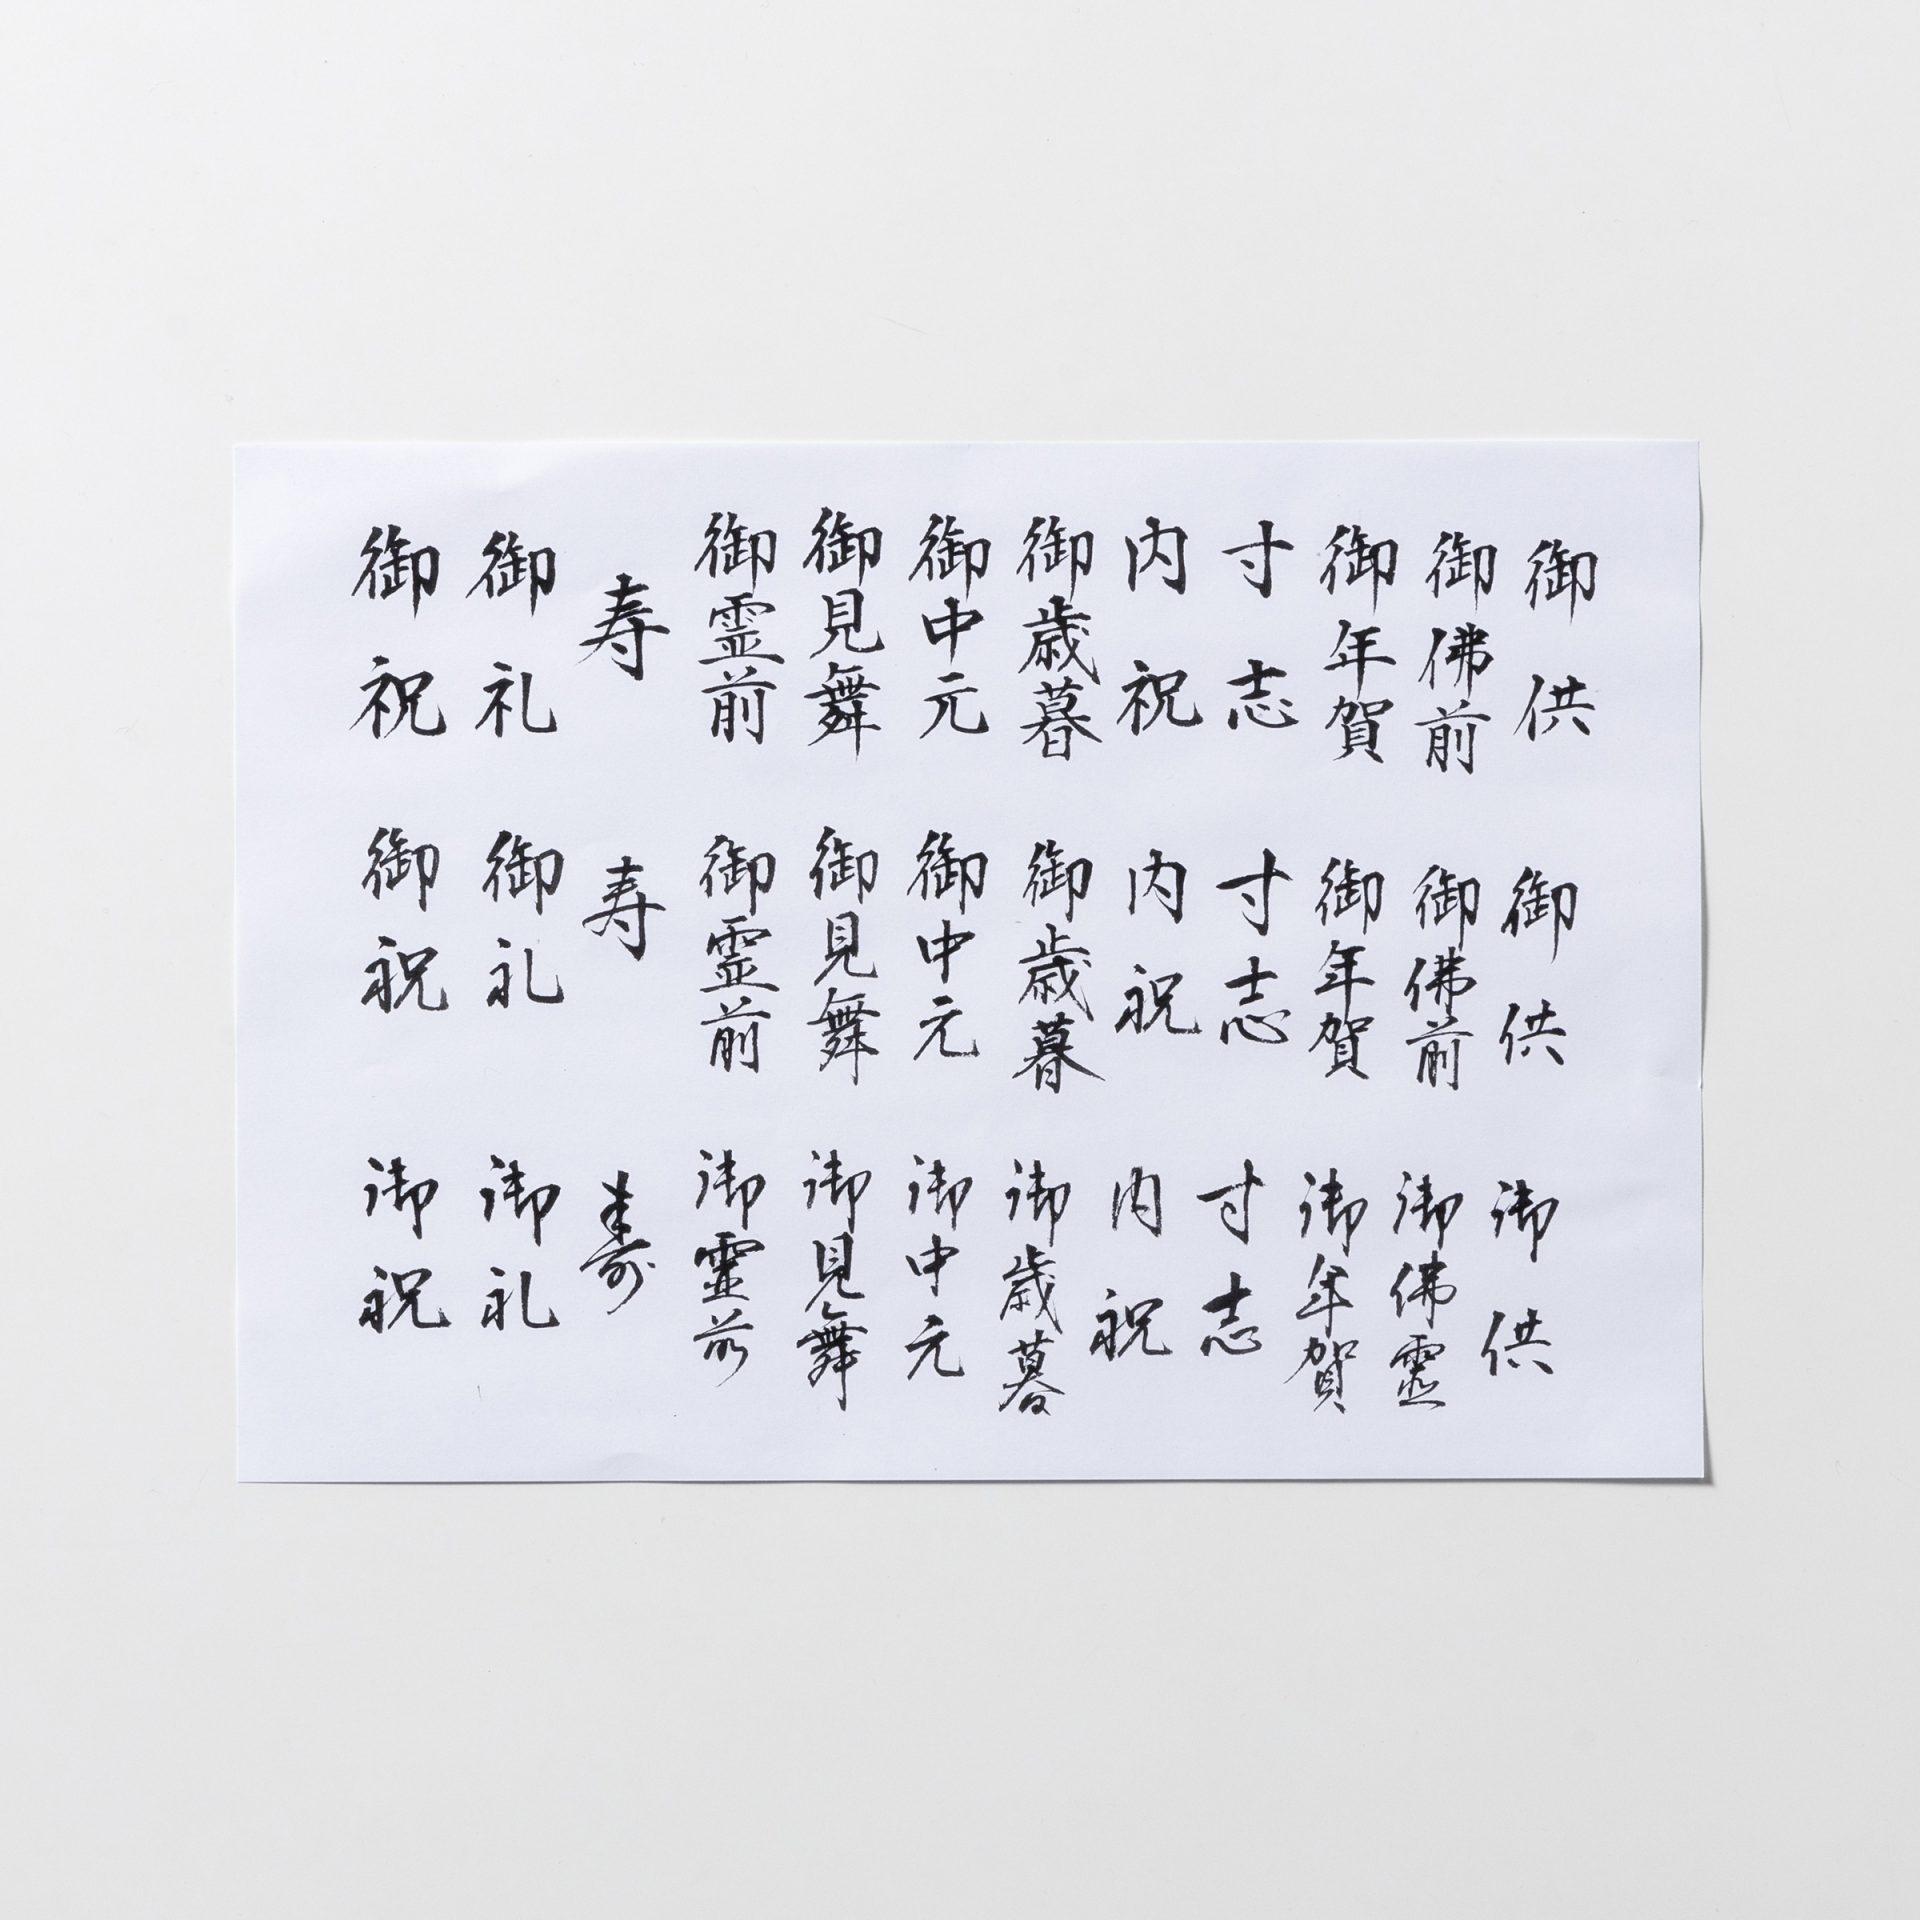 御供
御佛前
御年賀
寸志
内祝
御歳暮
御中元
御見舞
御霊前
寿
御礼
御祝
御供
御佛前
御年賀
寸志
内祝
御歳暮
御中元
御見舞
御霊前
寿
御礼
御祝
御供
御佛霊
御年賀
寸志
内祝
御歳暮
御中元
御見舞
御霊前
壽
御礼
御祝